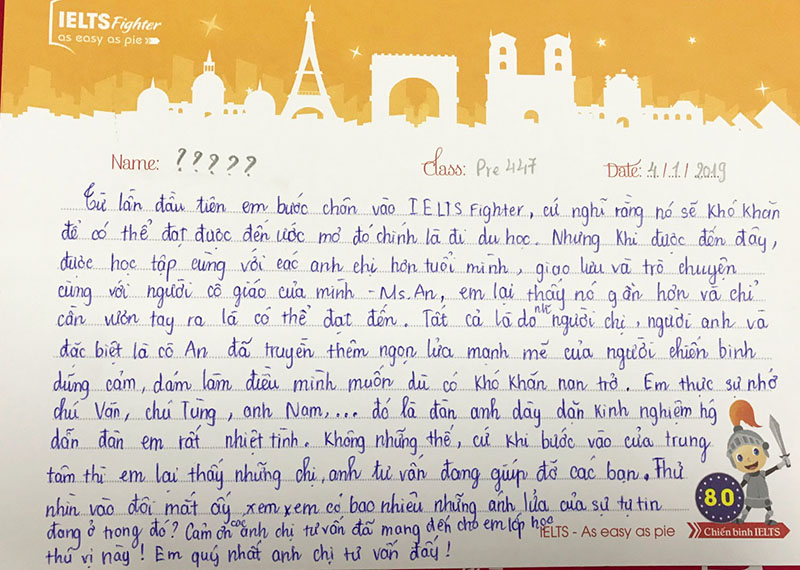 IELTS Fighter
as easy as pie
Name: ????? Class: Pre 447 Date: 4/1/2019
Từ lần đầu tiên em bước chân vào IELTS Fighter, cứ nghĩ rằng nó sẽ khó khăn
để có thể đạt được đến ước mơ đó chính là đi du học. Nhưng khi được đến đây,
được học tập cùng với các anh chị hơn tuổi mình, giao lưu và trò chuyện
cùng với người cô giáo của mình - Ms. An, em lại thấy nó gần hơn và chỉ
cần vươn tay ra là có thể đạt đến. Tất cả là do người chị, người anh và
đặc biệt là cô An đã truyền thêm ngọn lửa mạnh mẽ của người chiến binh
dũng cảm, dám làm điều mình muốn dù có khó khăn nan trở. Em thực sự nhớ
chú Văn, chú Tùng, anh Nam,... đó là đàn anh dày dặn kinh nghiệm
dẫn đàn em rất nhiệt tình. Không những thế, cứ khi bước vào cửa trung
tâm thì em lại thấy những chị, anh tư vấn đang giúp đỡ các bạn. Thử
nhìn vào đôi mắt ấy, xem xem có bao nhiêu những ánh lửa của sự tự tin
đang ở trong đó? Cảm ơn các anh chị tư vấn đã mang đến cho em lớp học
thú vị này! Em quý nhất anh chị tư vấn đấy!
8.0
IELTS - As easy as pie
Chiến binh IELTS